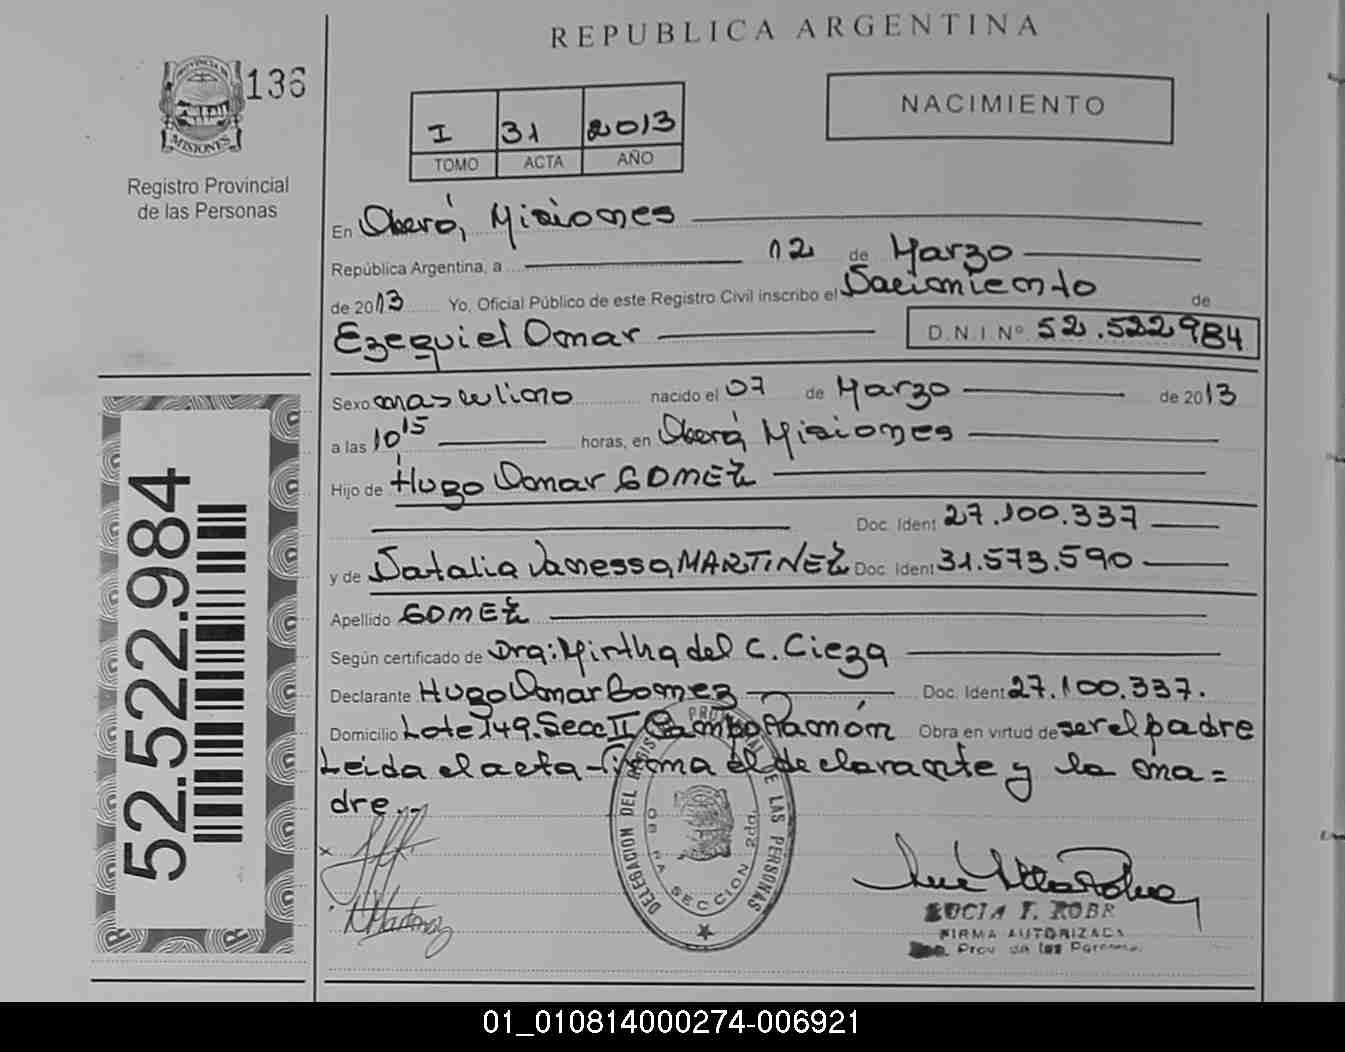 REPUBLICA ARGENTINA
136
PROVINCIA DE MISIONES
Registro Provincial
de las Personas
I 31 2013
TOMO ACTA AÑO
NACIMIENTO
En Oberá, Misiones
República Argentina, a 12 de Marzo
de 2013 Yo, Oficial Público de este Registro Civil inscribo el Nacimiento de
Ezequiel Omar D.N.I Nº 52.522984
Sexo masculino nacido el 07 de Marzo de 2013
a las 10 15 horas, en Oberá Misiones
Hijo de Hugo Omar GOMEZ
Doc. Ident 27.100.337
y de Natalia Vanessa MARTINEZ Doc. Ident 31.573.590
Apellido GOMEZ
Según certificado de Dra: Mirtha del C. Cieza
Declarante Hugo Omar Gomez Doc. Ident 27.100.337.
Domicilio Lote 149. Secc II Campo Ramón Obra en virtud de ser el padre
Leida el acta - firma el declarante y la ma=
dre.-
52.522.984
DELEGACION DEL REGISTRO PROVINCIAL DE LAS PERSONAS
SECCION 2da.
LUCIA F. ROBR
FIRMA AUTORIZADA
Prov de las Personas
01_010814000274-006921